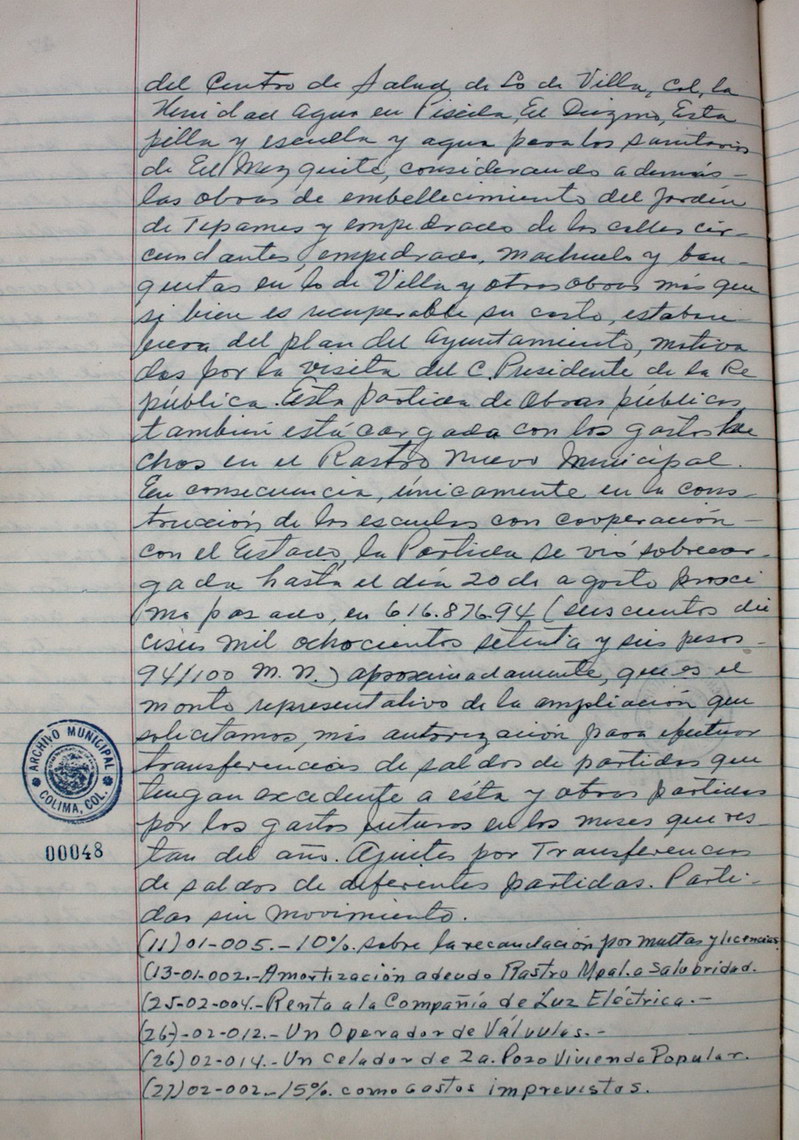 del Centro de Salud, de Lo de Villa, Col, la
Unidad Agua en Piscila, El Diezmo, Esta
pilla y escuela y agua para los sanitarios
de El Mezquite, considerando además-
las obras de embellecimiento del Jardín
de Tepames y empedrado de las calles cir-
cundantes, empedrado, machuelo y ban-
quetas en Lo de Villa y otras obras más que
si bien es recuperable su costo, estaban
fuera del plan del Ayuntamiento, motiva
das por la visita del C. Presidente de la Re
pública. Esta partida de Obras públicas
también está cargada con los gastos he
chos en el Rastro Nuevo Municipal.
En consecuencia, únicamente en la cons-
trucción de las escuelas con cooperación-
con el Estado, la Partida se vió sobrecar-
gada hasta el día 20 de agosto próxi
mo pasado, en 616.876.94 (seiscientos die
ciseis mil ochocientos setenta y seis pesos-
94/100 M.N.) aproximadamente, que es el
monto representativo de la ampliación que
solicitamos, más autorización para efectuar
transferencias de saldos de partidas que
tengan excedente a ésta y otras partidas
por los gastos futuros en los meses que res
tan del año. Ajustes por Transferencias
de saldos de diferentes partidas. Parti-
das sin movimiento.
(11) 01-005.-10% sobre la recaudación por multas y licencias.
(13-01-002.-Amortización adeudo Rastro Mpal. a Salubridad.
(25-02-004.-Renta a la Compañía de Luz Eléctrica.-
(26)-02-012.-Un Operador de Válvulas.-
(26) 02-014.-Un Celador de 2a. Pozo Vivienda Popular.
(27) 02-002.-15% como Gastos imprevistos.
ARCHIVO MUNICIPAL
COLIMA, COL.
00048